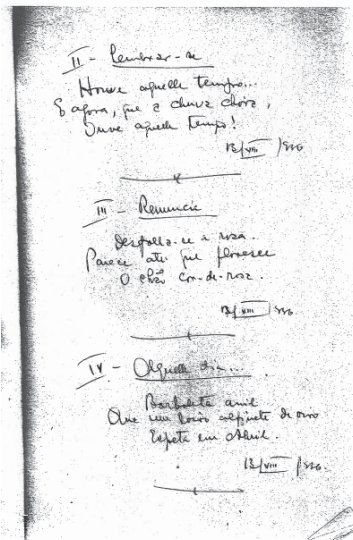 II - Lembrar-se
Houve aquelle tempo...
E agora, que a chuva chora,
Ouve aquelle tempo!
13/VIII/936
III - Renuncia
Desfolha-se a rosa.
Parece até que floresce
O chão cor-de-rosa.
13/VIII/936
IV - Aquelle dia...
Borboleta anil
Que um louro alfinete de ouro
Espeta em Abril.
13/VIII/936.